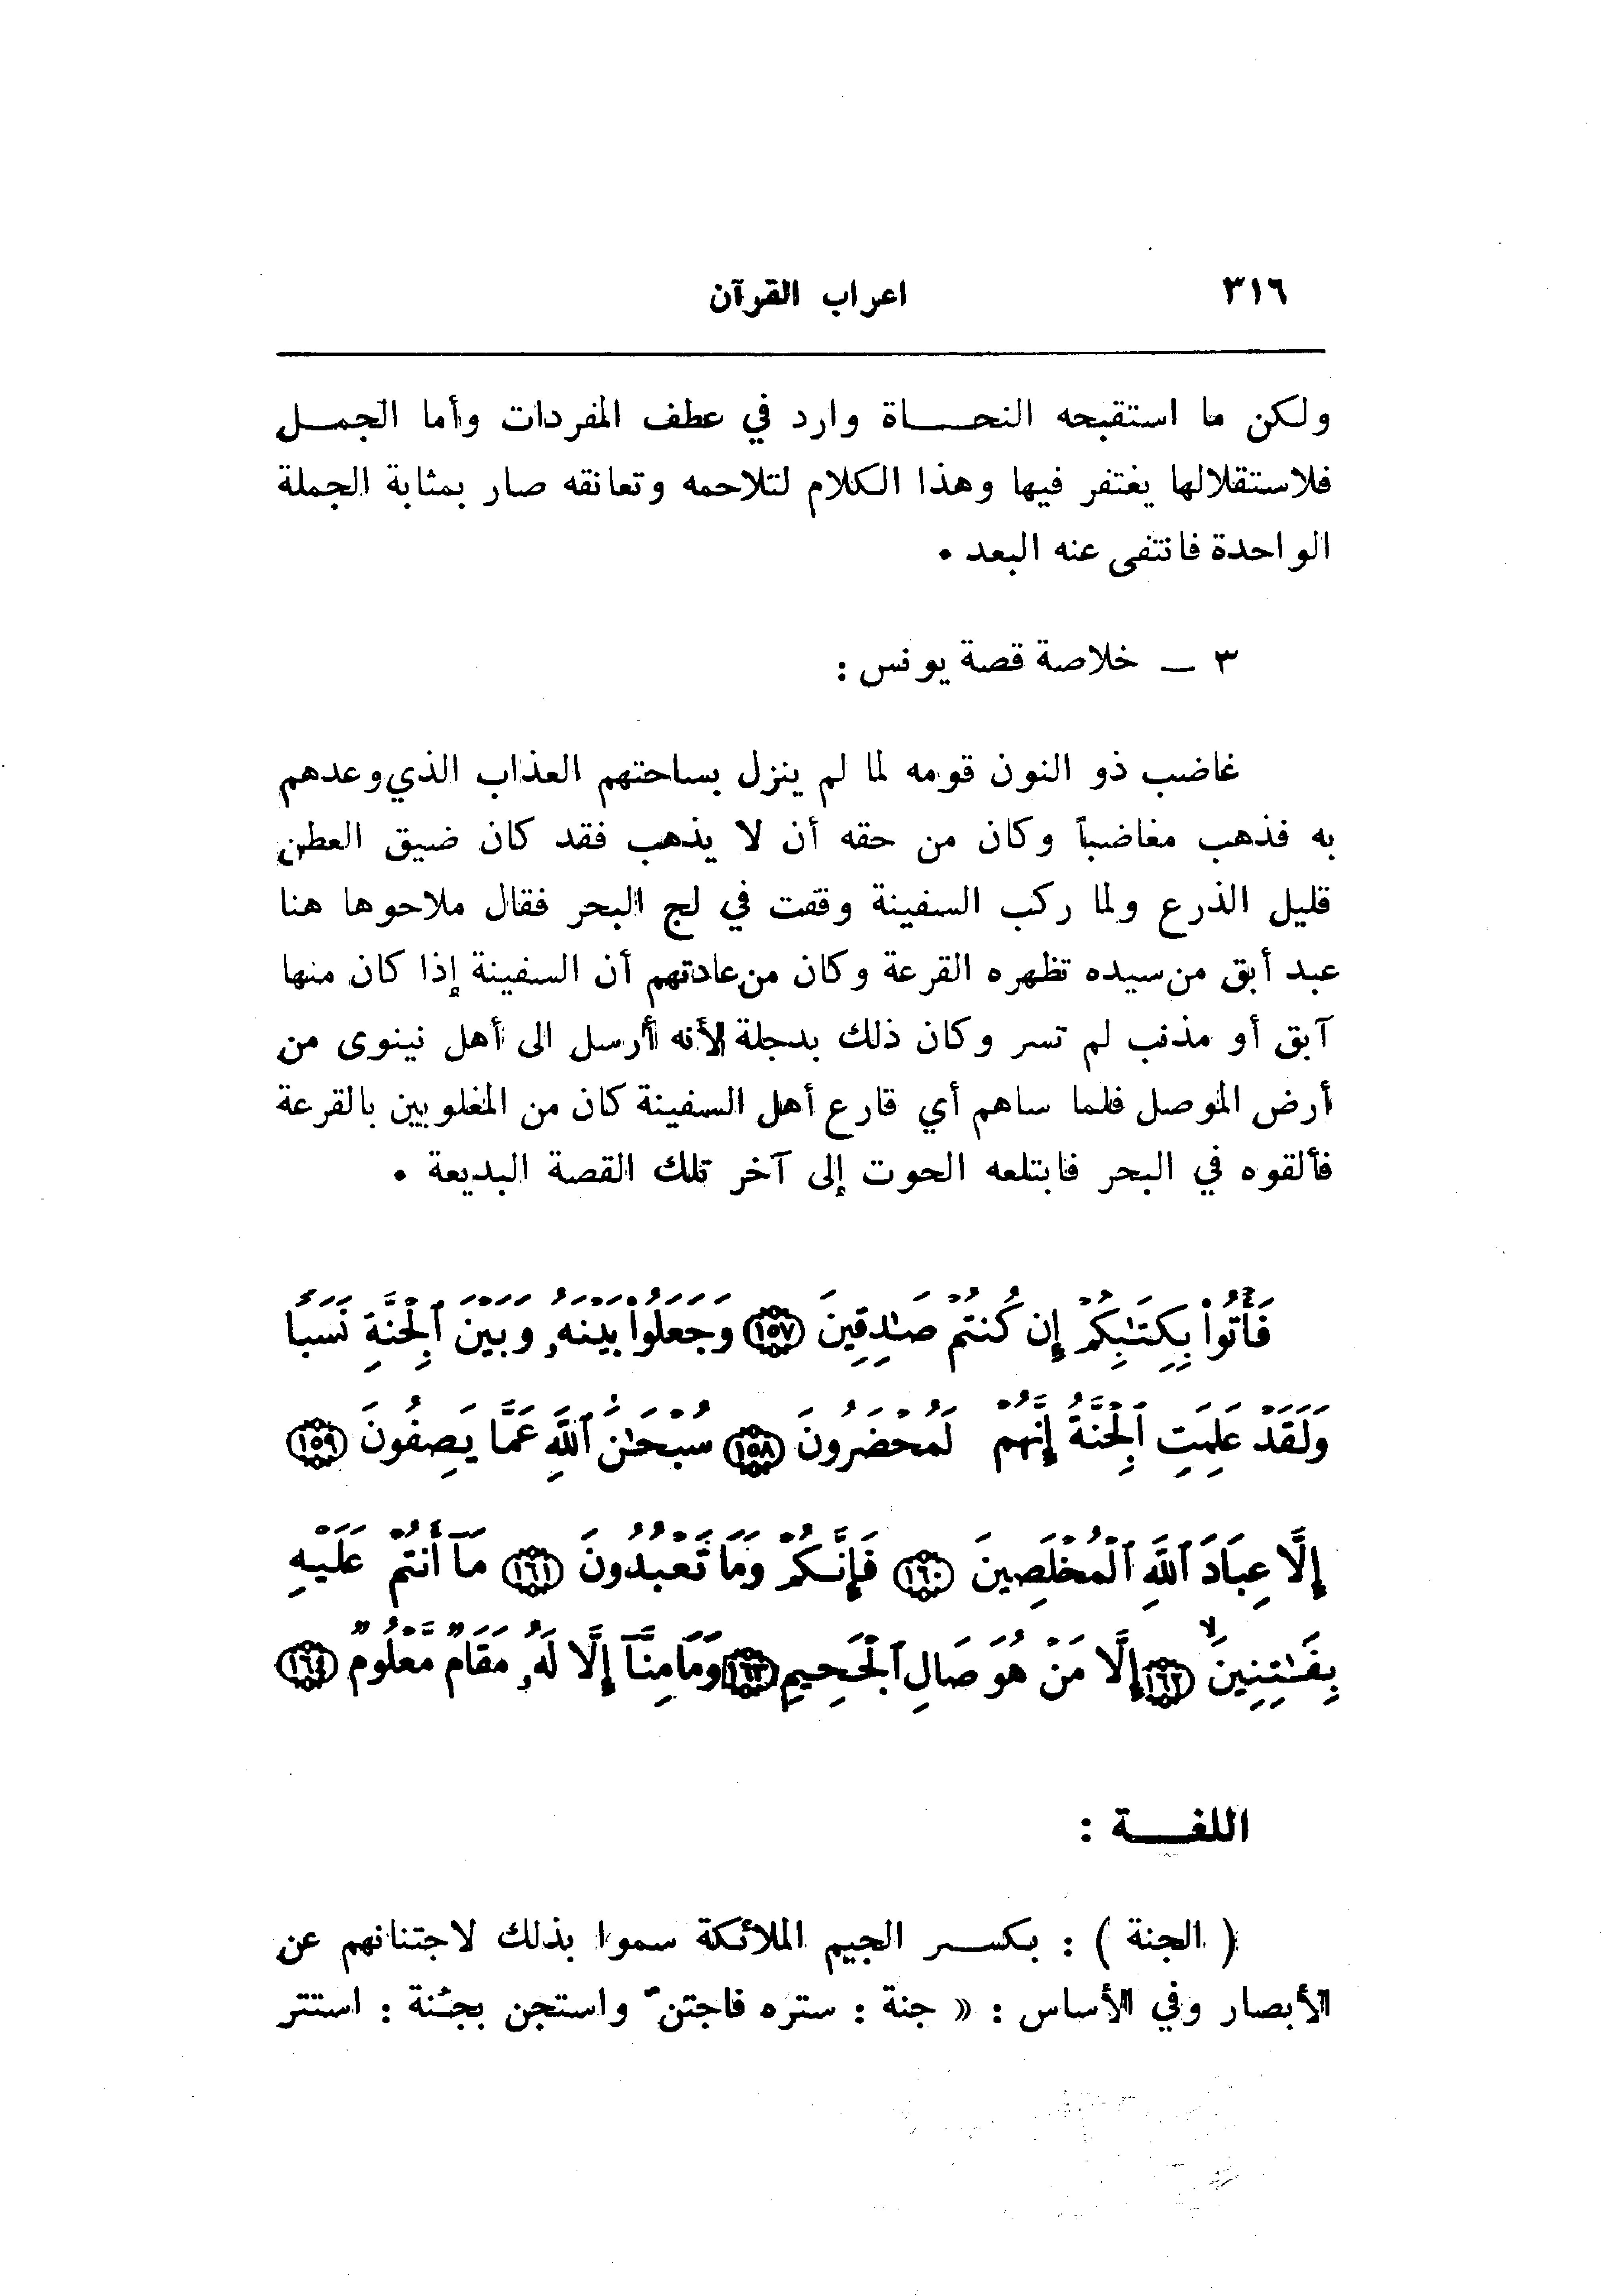 ٣١٦ اعراب القرآن
ولكن ما استقبحه النحـــاة وارد في عطف المفردات وأما الجمـل
فلاستقلالها يغتفر فيها وهذا الكلام لتلاحمه وتعانقه صار بمثابة الجملة
الواحدة فانتفى عنه البعد .
٣ ــ خلاصة قصة يونس :
غاضب ذو النون قومه لما لم ينزل بساحتهم العذاب الذي وعدهم
به فذهب مغاضباً وكان من حقه أن لا يذهب فقد كان ضيق العطن
قليل الذرع ولما ركب السفينة وقفت في لج البحر فقال ملاحوها هنا
عبد أبق من سيده تظهره القرعة وكان من عادتهم أن السفينة إذا كان منها
آبق أو مذنب لم تسر وكان ذلك بدجلة لأنه أرسل الى أهل نينوى من
أرض الموصل فلما ساهم أي قارع أهل السفينة كان من المغلوبين بالقرعة
فألقوه في البحر فابتلعه الحوت إلى آخر تلك القصة البديعة .
فَأْتُوا۟ بِكِتَـٰبِكُمْ إِن كُنتُمْ صَـٰدِقِينَ ١٥٧ وَجَعَلُوا۟ بَيْنَهُۥ وَبَيْنَ ٱلْجِنَّةِ نَسَبًا
وَلَقَدْ عَلِمَتِ ٱلْجِنَّةُ إِنَّهُمْ لَمُحْضَرُونَ ١٥٨ سُبْحَـٰنَ ٱللَّهِ عَمَّا يَصِفُونَ ١٥٩
إِلَّا عِبَادَ ٱللَّهِ ٱلْمُخْلَصِينَ ١٦٠ فَإِنَّكُمْ وَمَا تَعْبُدُونَ ١٦١ مَآ أَنتُمْ عَلَيْهِ
بِفَـٰتِنِينَ ١٦٢ إِلَّا مَنْ هُوَ صَالِ ٱلْجَحِيمِ ١٦٣ وَمَا مِنَّآ إِلَّا لَهُۥ مَقَامٌ مَّعْلُومٌ ١٦٤
اللغـــة :
( الجنة ) : بكســر الجيم الملائكة سموا بذلك لاجتنانهم عن
الأبصار وفي الأساس : « جنة : ستره فاجتنّ واستجن بجُنة : استتر